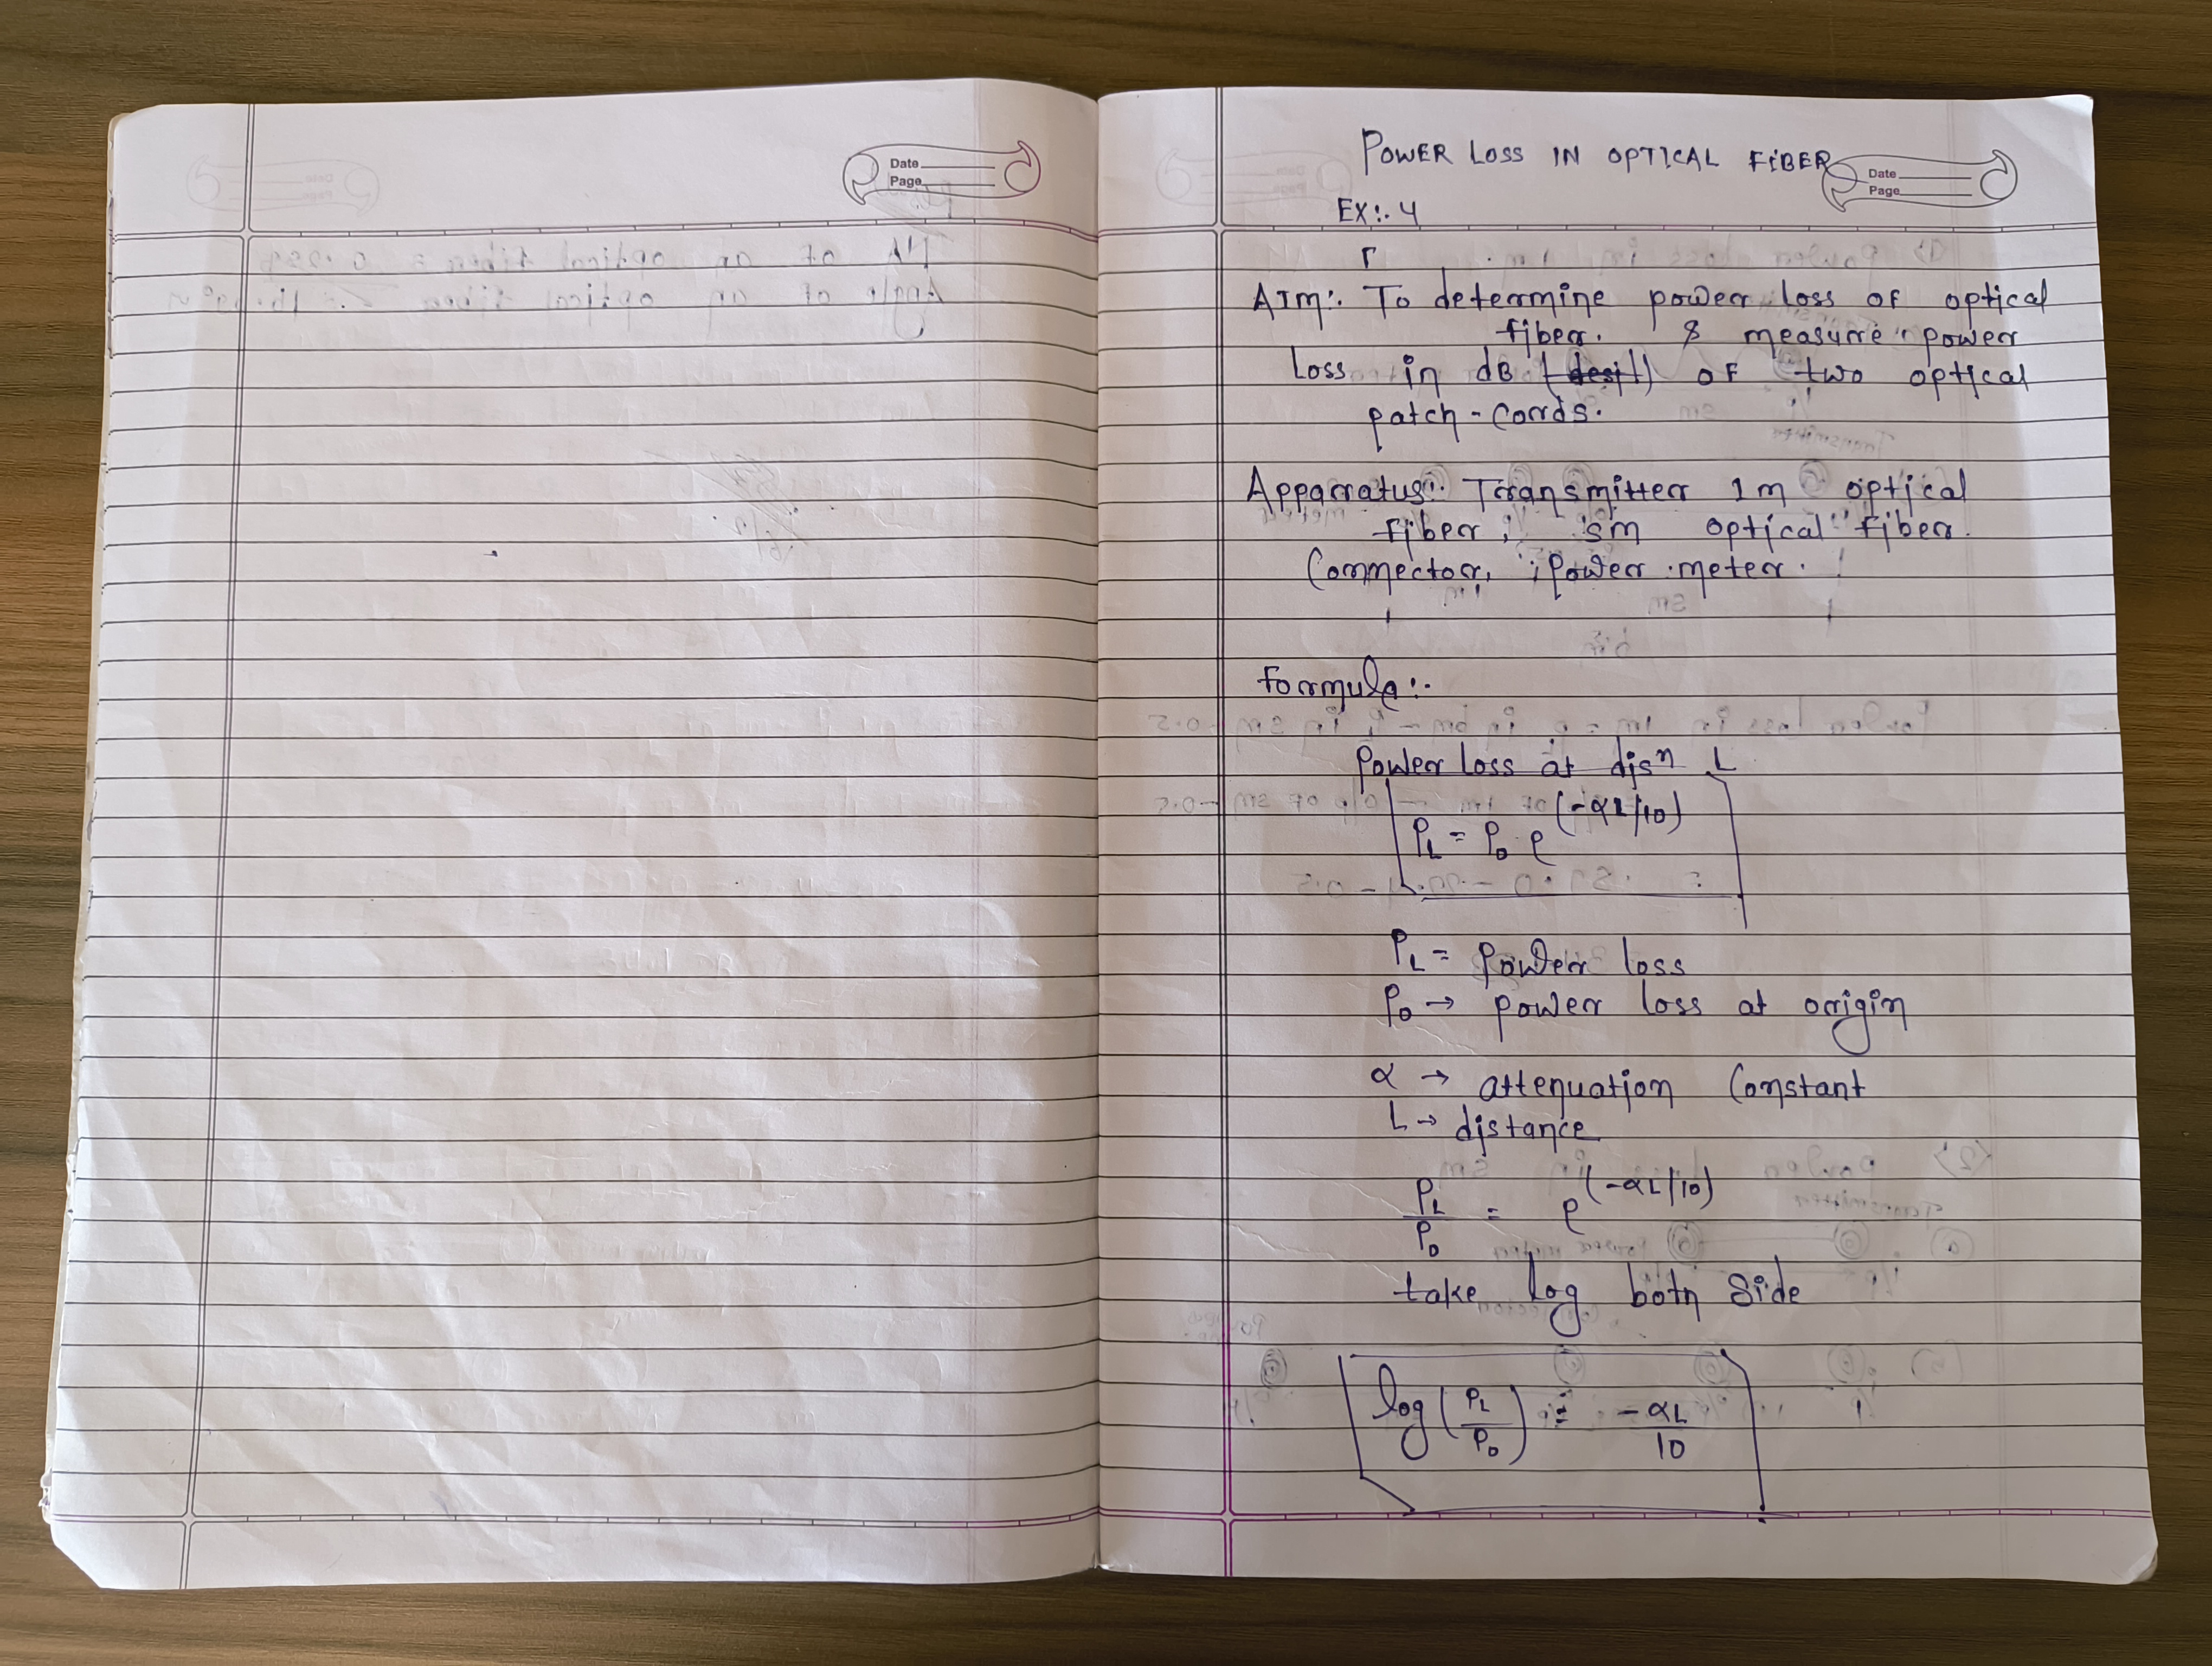 Date
Page
POWER LOSS IN OPTICAL FIBER
Date
Page
EX:. 4
AIM:. To determine power loss OF optical
fiber. & measure power
Loss in dB (desil) OF two optical
patch - Cords.
Apparatus:. Transmitter 1m optical
fiber, 5m optical fiber.
Connector, power meter.
Formula:.
Power Loss at disn L
PL = P0 e^(-αL/10)
PL = Power loss
P0 → power loss at origin
α → attenuation Constant
L → distance
PL/P0 = e^(-αL/10)
take log both Side
log(PL/P0) = -αL/10